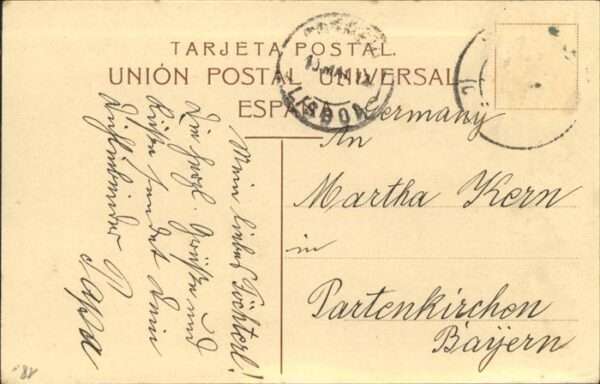 TARJETA POSTAL.
UNIÓN POSTAL UNIVERSAL
ESPAÑA
LISBOA
Germany
An
Martha Kern
in
Partenkirchen
Bayern
Mein liebes Töchterl!
Die herzl. Grüße und
Küsse sendet Dein
Dichliebender
Papa